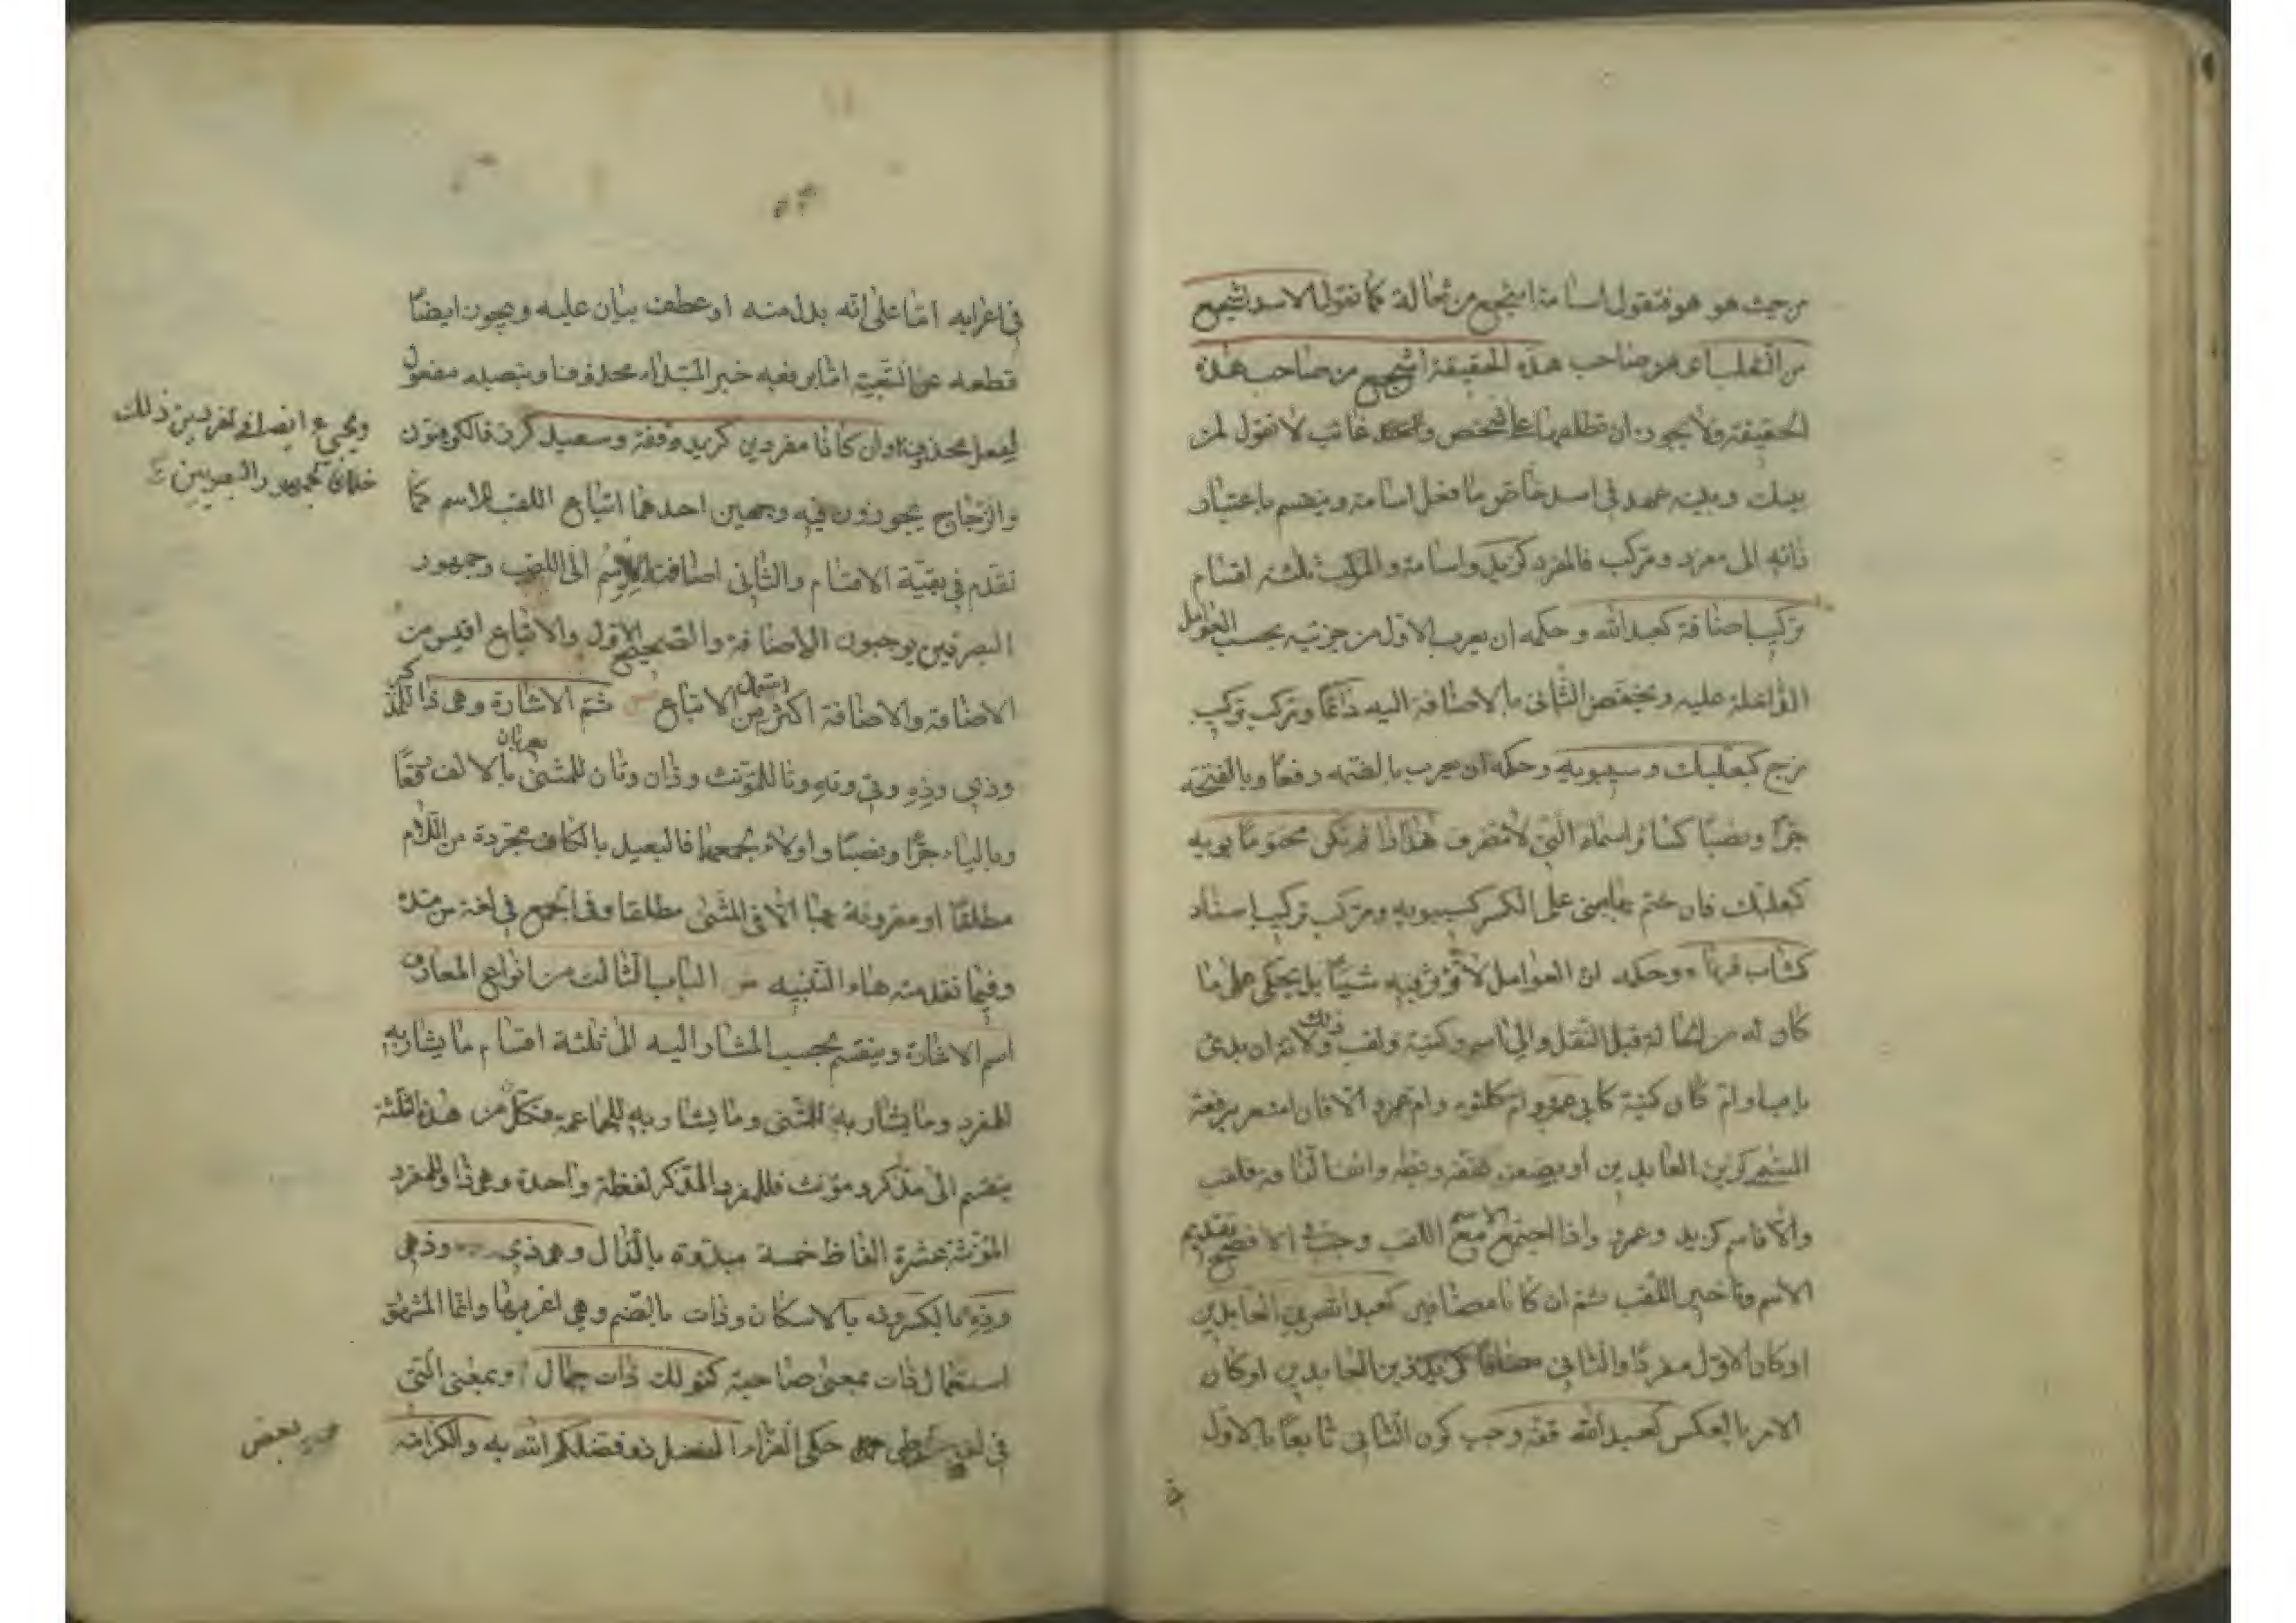 من حيث هو هو فتقول اسامة اشجع من ثعالة كما تقول الاسد اشجع
من الثعلب اى من صاحب هذه الحقيقة اشجع من صاحب هذه
الحقيقة ولا يجوز ان تطلقها على شخص غائب لا تقول لمن
بينك وبينه عهد فى اسد خاص ما فعل اسامة وينقسم باعتبار
ذاته الى مفرد ومركب فالمفرد كزيد واسامة والمركب ثلثة اقسام
تركيب اضافة كعبد الله وحكمه ان يعرب الاول من جزئيه بحسب العوامل
الداخلة عليه ويخفض الثانى بالاضافة اليه دائما ومركب تركيب
مزج كبعلبك وسيبويه وحكمه ان يعرب بالضمة رفعا وبالفتحة
جرّا ونصبا كسائر اسماء التى لا تنصرف هذا اذا لم يكن مختوما بويه
كبعلبك فان ختم بها بنى على الكسر كسيبويه ومركب تركيب اسناد
كشاب قرناها وحكمه ان العوامل لا تؤثر فيه شيئا بل يحكى على ما
كان له من الحالة قبل النقل والى اسم وكنية ولقب وذلك لانه ان بدئ
باب او ام كان كنية كابى عمرو وام كلثوم وام عمرو والا فان اشعر برفعة
المسمى كزين العابدين او بضعته كقفة وبطة وانف الناقة فلقب
والا فاسم كزيد وعمرو واذا اجتمع الاسم مع اللقب وجب فى الافصح تقديم
الاسم وتاخير اللقب ثم ان كانا مضافين كعبد الله زين العابدين
او كان الاول مفردا والثانى مضافا كزيد زين العابدين او كان
الامر بالعكس كعبد الله قفة وجب كون الثانى تابعا للاول
فى
فى اعرابه اما على انه بدل منه او عطف بيان عليه ويجوز ايضا
قطعه عن التبعية اما برفعه خبر المبتداء محذوفا وبنصبه مفعولا
لفعل محذوف وان كانا مفردين كزيد وقفة وسعيد كرز فالكوفيون
والزجاج يجوزون فيه وجهين احدهما اتباع اللقب للاسم كما
تقدم فى بقية الاقسام والثانى اضافة الاسم الى اللقب وجمهور
البصريين يوجبون الاضافة والصحيح الاول والاتباع اقيس من
الاضافة والاضافة اكثر استعمال من الاتباع ص ثم الاشارة وهى ذا للمذكر
وذى وذه وتى وته وتا للمؤنث وذان وتان للمثنى يعربان بالالف رفعا
وبالياء جرّا ونصبا واولاء لجمعهما فالبعيد بالكاف مجردة من اللام
مطلقا او مقرونة بها الا فى المثنى مطلقا وفى الجمع فى لغة من مده
وفيما تقدمته هاء التنبيه ش الباب الثالث من انواع المعارف
اسم الاشارة وينقسم بحسب المشار اليه الى ثلثة اقسام ما يشار به
للمفرد وما يشار به للمثنى وما يشار به للجماعة فكل من هذه الثلثة
ينقسم الى مذكر ومؤنث فللمفرد المذكر لفظة واحدة وهى ذا وللمفرد
المؤنثة عشرة الفاظ خمسة مبدوة بالذال وهى ذى وذهى
وذه بالكسر وذه بالاسكان وذات بالضم وهى اغربها وانما المشهور
استعمال ذات بمعنى صاحبة كقولك ذات جمال او بمعنى التى
فى لغة بعض طى حكى الفراء بالفضل ذو فضلكم الله به والكرامة
خلاف جمهور البصريين
بعض